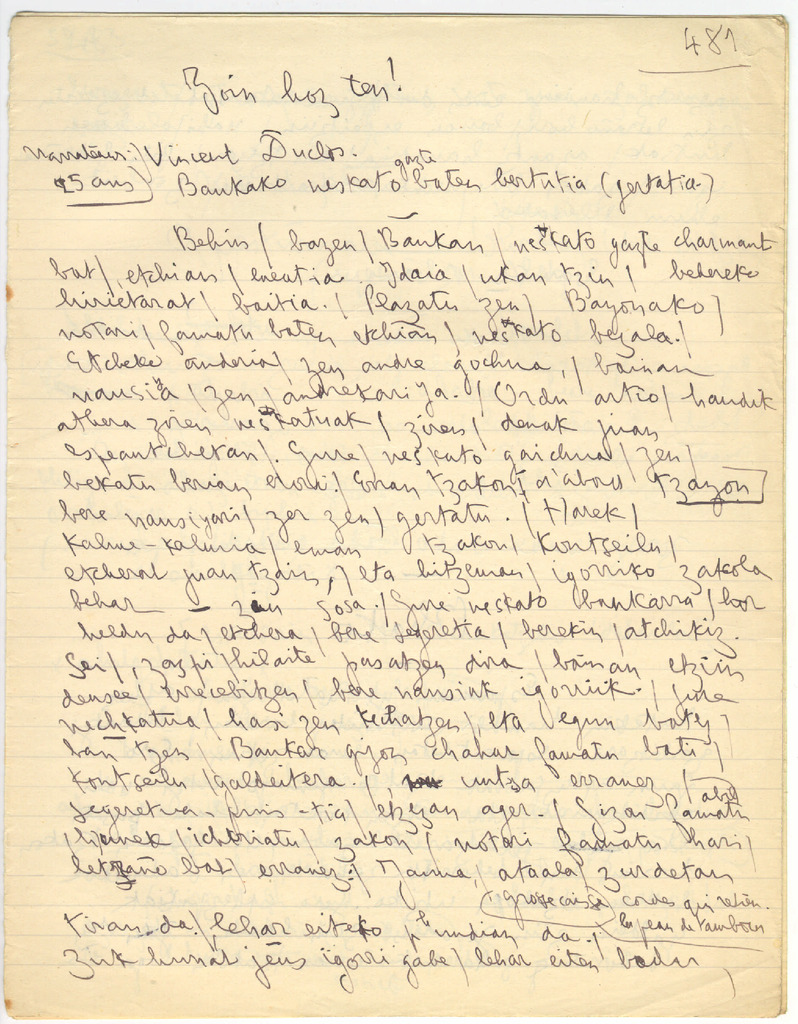 481
Zoin hoz ten!
narrateur:) Vincent Duclos.
25 ans) Baukako neskato gazte baten bertutia (gertatia-)
Behin / bazen / Baukan / neskato gazte charmant
bat /, etchian / eneatia. Idaia / ukan tzin / bedereko
hirietarat / baitia. / Plazatu zen / Bayonako /
notari / famatu baten etchian / neskato bezala. /
Etcheko anderia / zen andre gochua, / bainan
nausia / zen / andrekariya. / Ordu artio / handik
athera ziren neskatuak / ziren / denak juan
espeantchetan /. Gure / neskato gaichua / zen /
bekatu berian erori. / Erran tzakon / d'abord tzayon
bere nausiyari / zer zen / gertatu. / Harek /
kalme-kalmia / eman tzakon / kontseilu /
etcherat juan tzain, / eta hitzeman / igorriko zakola
behar - zuin sosa. / Gure neskato baukarra / hor
heldu da / etchera / bere segeretia / berekin / atchikiz.
Sei /, zazpi / hilaite pasatzen dira / bainan etziin
deusee / errecebitzen / bere nausiak igorriik. / gure
nechkatua / hasi zen kechatzen /, eta egun batez /
ban tzen / Baukar gizon chahar famatu bati /
kontseilu / galdeitera. /, untsa erranez /
segeretua - puns - tia / etzezan ager. / Gizon famatu
/ hunek / ichkiriatu / zakon / notari famatu hari /
letraño bat / erranez: / Jauna, ataala / zurdetan
(grosse caisse) cordes qui retien.
la peau de tambour
tiran da. / lehar eiteko p'undian da. /
Zuk hunat jeus igorri gabe / lehar eiten badu /